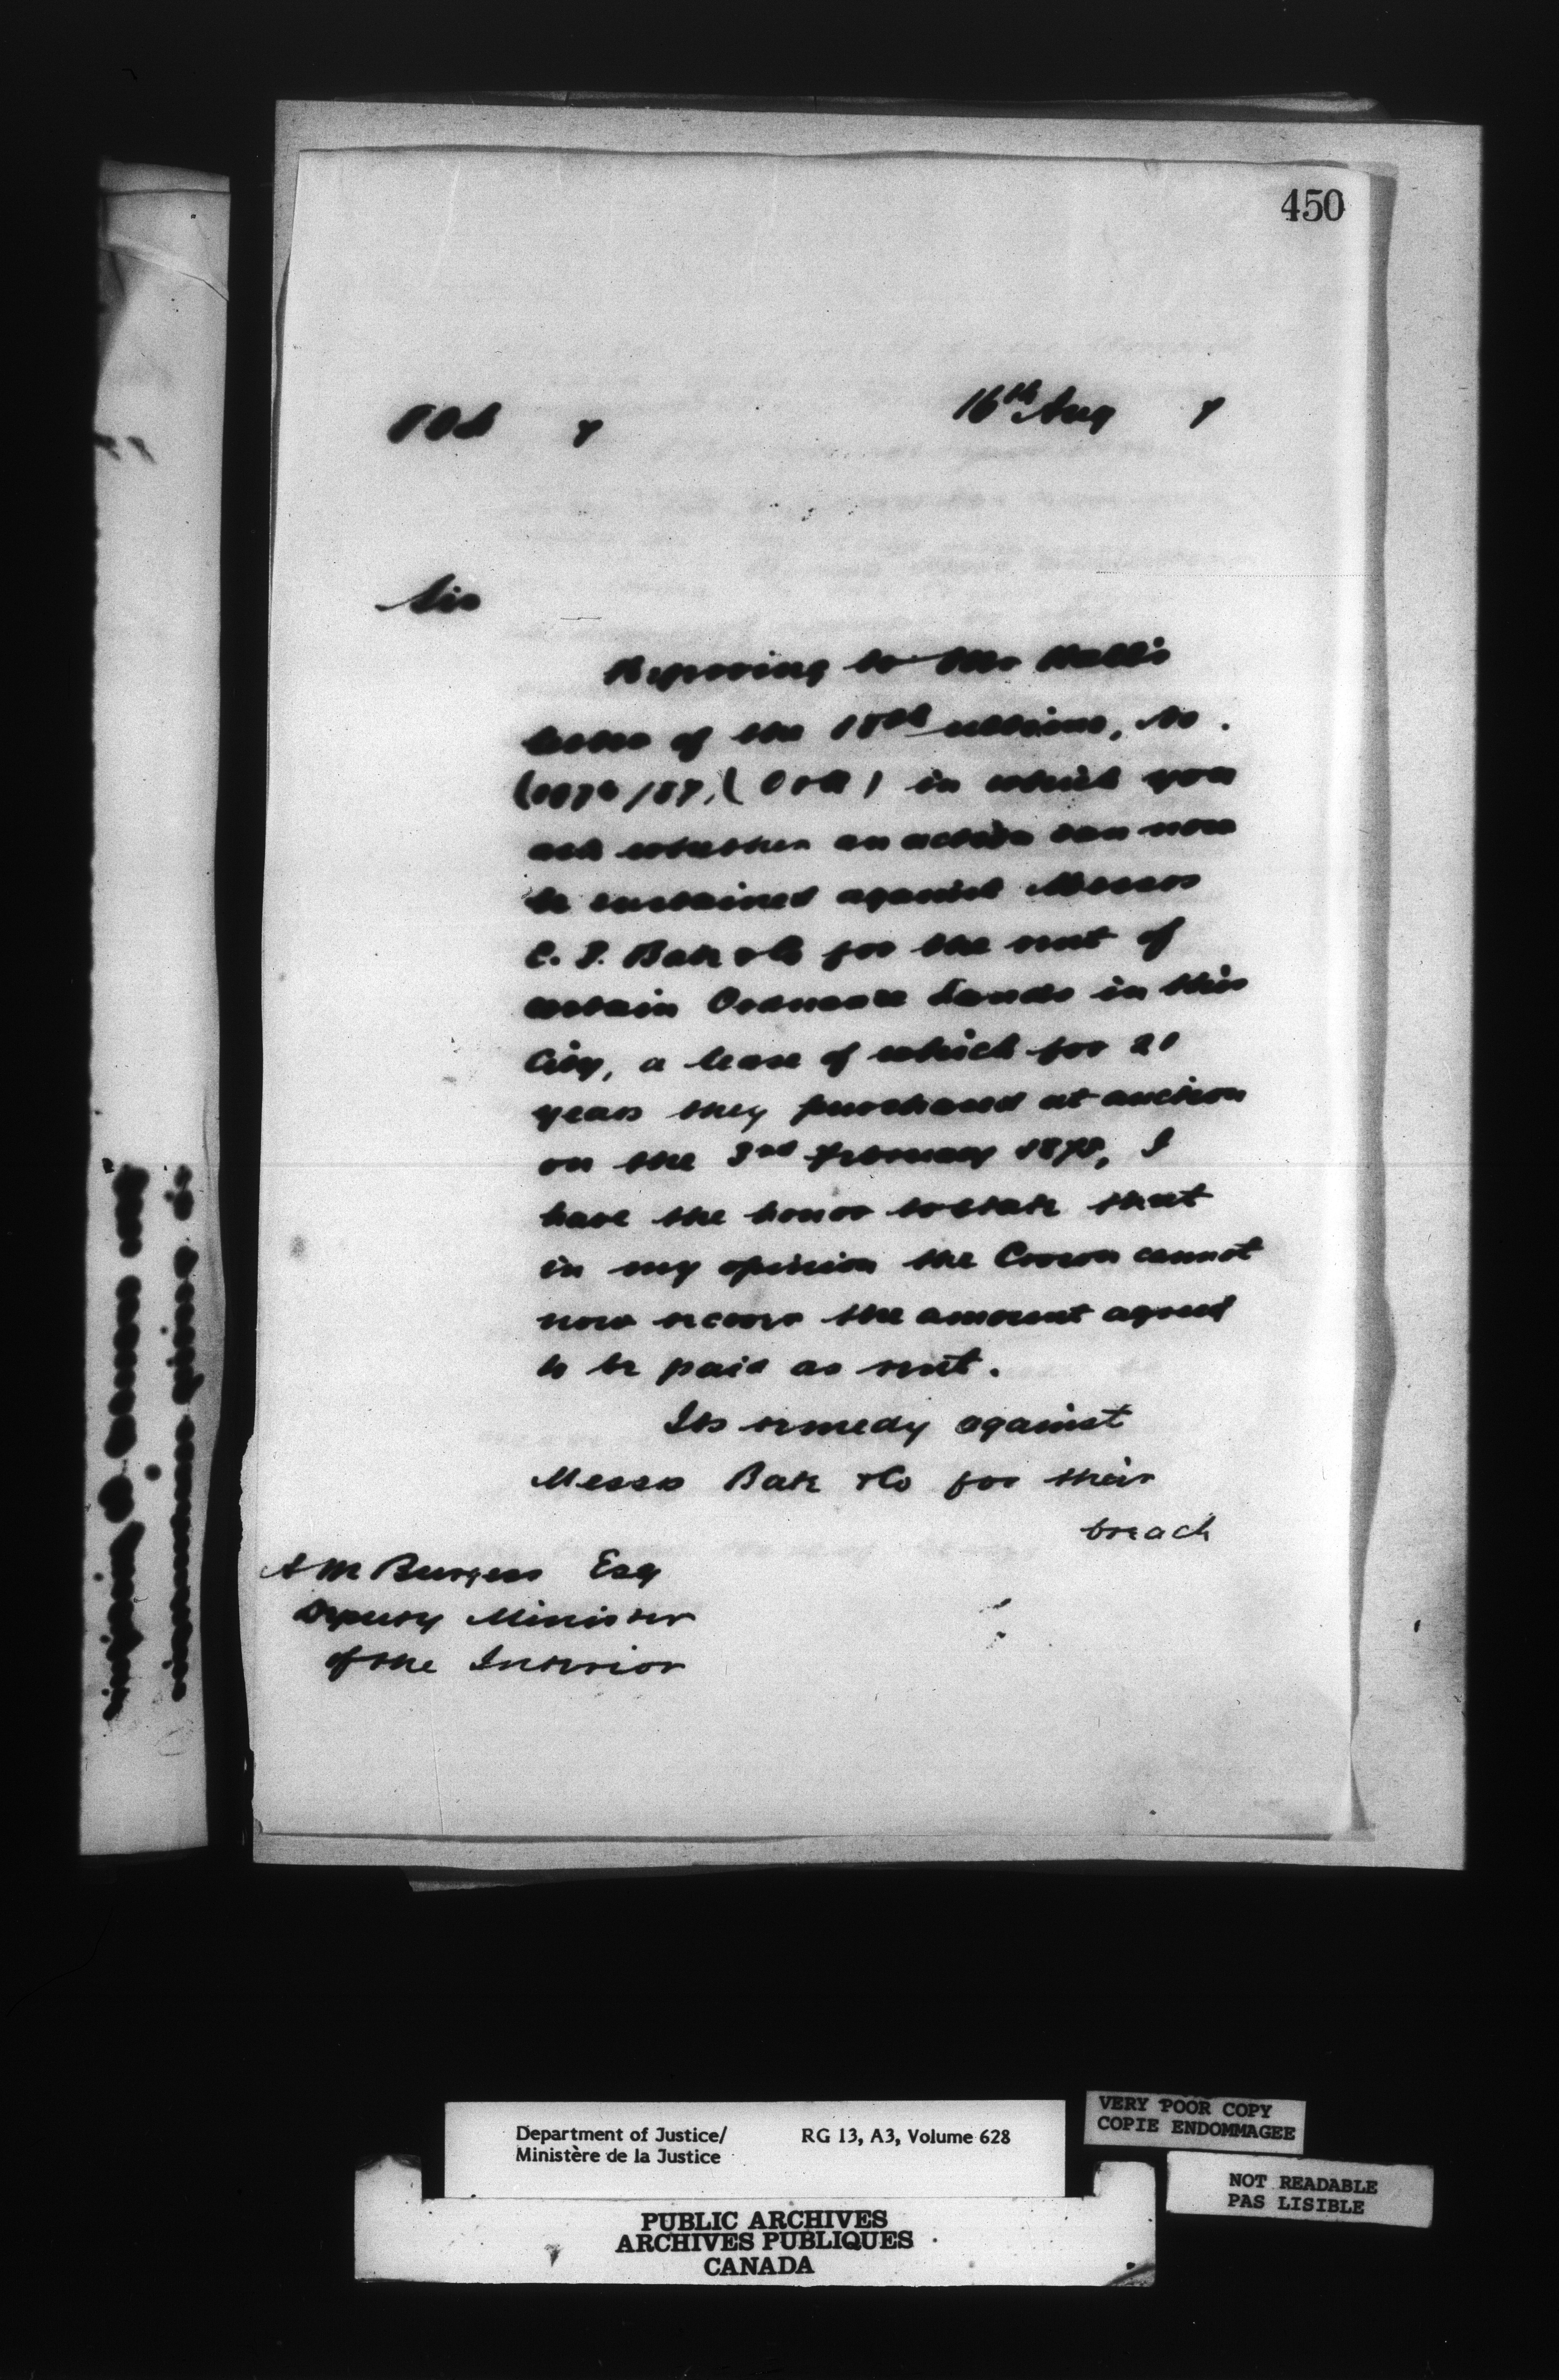 450
16th Aug 7
Sir
Referring to Mr Hall's
letter of the 18th ultimo, No.
in which you
ask whether an action can now
be sustained against Messrs
C. T. Bate & Co for the rent of
certain Ordnance Lands in this
City, a lease of which for 21
years they purchased at auction
on the 3rd February 1875, I
have the honor to state that
in my opinion the Crown cannot
now recover the amount agreed
to be paid as rent.
Its remedy against
Messrs Bate & Co for their
breach
A M Burgess Esq
Deputy Minister
of the Interior
Department of Justice/ RG 13, A3, Volume 628
Ministère de la Justice
VERY POOR COPY
COPIE ENDOMMAGEE
NOT READABLE
PAS LISIBLE
PUBLIC ARCHIVES
ARCHIVES PUBLIQUES
CANADA